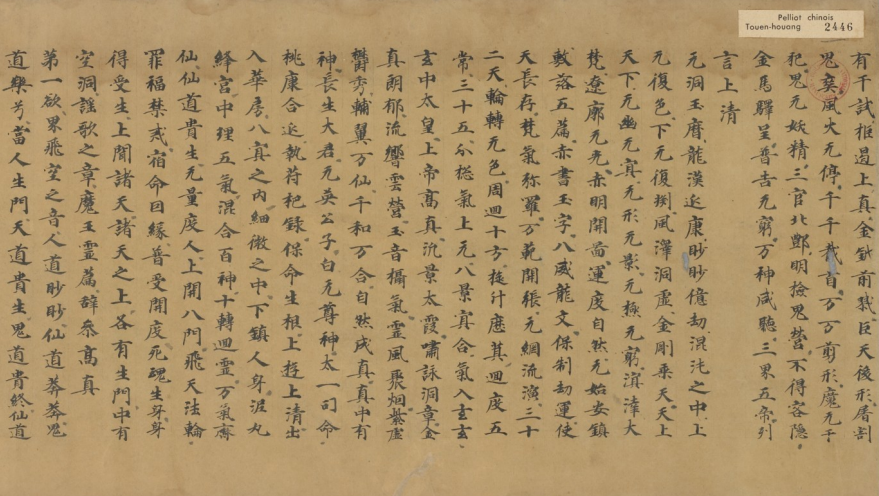 Pelliot chinois
Touen-houang 2446
有干試拒遏上真金鉞前戮巨天後形屠割
鬼爽風火无停千千截首万万剪形魔无干
犯鬼无妖精三官北酆明撿鬼營不得容隱
金馬驛呈普告无窮万神咸聽三界五帝列
言上清
元洞玉曆龍漢延康眇眇億劫混沌之中上
无復色下无復淵風澤洞虛金剛乘天天上
天下无幽无冥无形无影无極无窮溟涬大
梵遼廓无光赤明開啚運度自然元始安鎮
敷落五篇赤書玉字八威龍文保制劫運使
天長存梵氣弥羅万範開張元綱流演三十
二天輪轉无色周迴十方旋什歷箕迴度五
常三十五分揔氣上元八景冥合氣入玄玄
玄中太皇上帝高真汎景太霞嘯詠洞章金
真朗郁流響雲營玉音攝氣靈風聚烟紫虛
欝秀輔翼万仙千和万合自然成真真中有
神長生大君无英公子白元尊神太一司命
桃康合延執苻把錄保命生根上遊上清出
入華房八冥之內細微之中下鎮人身泥丸
絳宮中理五氣混合百神十轉迴靈万氣齊
仙仙道貴生无量度人上開八門飛天法輪
罪福禁戒宿命因緣普受開度死魂生身身
得受生上聞諸天諸天之上各有生門中有
空洞謡歌之章魔王靈篇辭叅高真
第一欲界飛空之音人道眇眇仙道莽莽鬼
道樂兮當人生門天道貴生鬼道貴終仙道